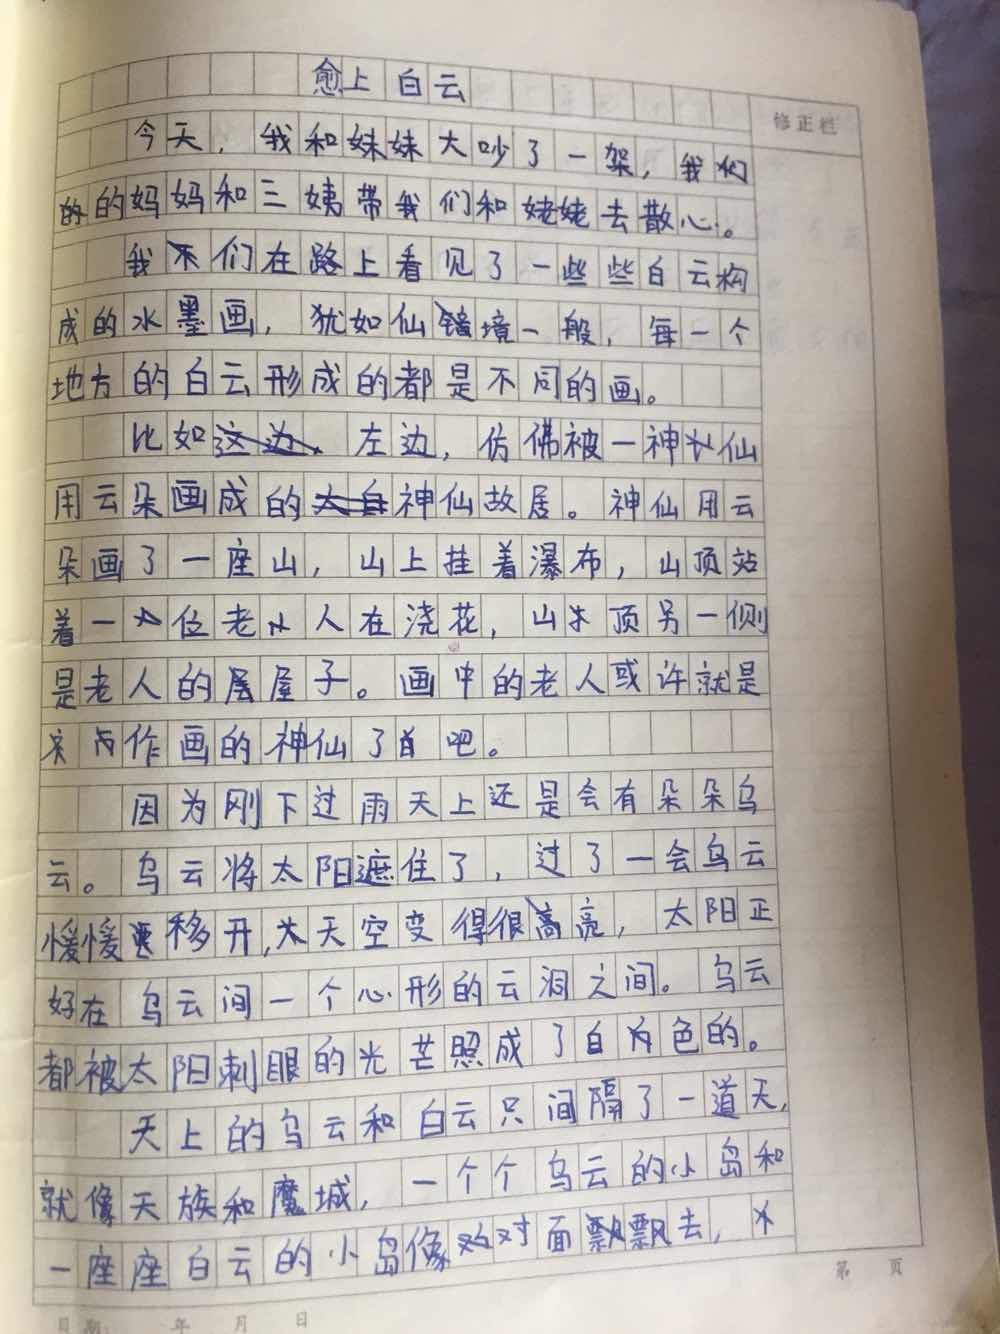 愈上白云
修正栏
今天，我和妹妹大吵了一架，我们
的妈妈和三姨带我们和姥姥去散心。
我们在路上看见了一些些白云构
成的水墨画，犹如仙境一般，每一个
地方的白云形成的都是不同的画。
比如左边，仿佛被一神仙
用云朵画成的神仙故居。神仙用云
朵画了一座山，山上挂着瀑布，山顶站
着一位老人在浇花，山顶另一侧
是老人的屋子。画中的老人或许就是
作画的神仙了吧。
因为刚下过雨天上还是会有朵朵乌
云。乌云将太阳遮住了，过了一会乌云
缓缓移开，天空变得很亮，太阳正
好在乌云间一个心形的云洞之间。乌云
都被太阳刺眼的光芒照成了白色的。
天上的乌云和白云只间隔了一道天，
就像天族和魔城，一个个乌云的小岛和
一座座白云的小岛像对面飘飘去，
第 页
日期： 年 月 日